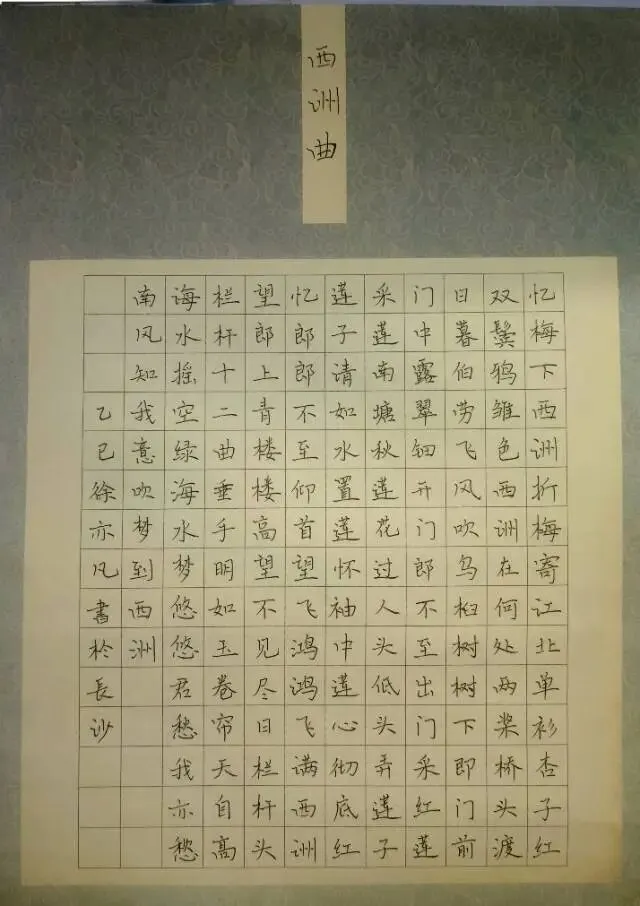 西洲曲
忆梅下西洲折梅寄江北单衫杏子红
双鬓鸦雏色西洲在何处两桨桥头渡
日暮伯劳飞风吹乌桕树树下即门前
门中露翠钿开门郎不至出门采红莲
采莲南塘秋莲花过人头低头弄莲子
莲子请如水置莲怀袖中莲心彻底红
忆郎郎不至仰首望飞鸿鸿飞满西洲
望郎上青楼楼高望不见尽日栏杆头
栏杆十二曲垂手明如玉卷帘天自高
海水摇空绿海水梦悠悠君愁我亦愁
南风知我意吹梦到西洲
乙巳徐亦凡書於長沙